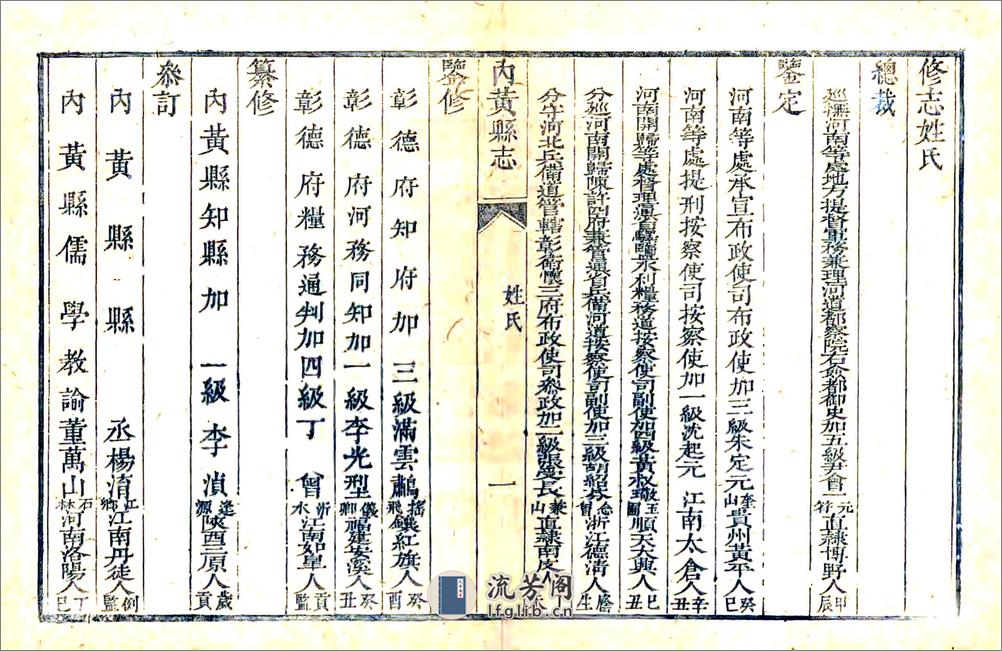 修志姓氏
總裁
巡撫河南等處地方提督軍務兼理河道都察院右僉都御史加五級尹會一元孚直隸博野人甲辰
鑒定
河南等處承宣布政使司布政使加三級朱定元奎山貴州黃平人癸巳
河南等處提刑按察使司按察使加一級沈起元 江南太倉人辛丑
河南開歸等處督理通省驛鹽水利糧務道按察使司副使加四級黃叔璥玉圃順天大興人己丑
分巡河南開歸陳許四府兼管通省兵備河道按察使司副使加三級胡紹芬 浙江德清人廕生
分守河北兵備道管轄彰衛懷三府布政使司參政加二級張慶長兼山直隸南皮人
內黃縣志
姓氏
一
鑒修
彰德府知府加三級滿雲鸘 鑲紅旗人癸酉
彰德府河務同知加一級李光型儀卿福建安溪人癸丑
彰德府糧務通判加四級丁 曾沂水江南如皋人貢監
纂修
內黃縣知縣加一級李湞逢源陝西三原人歲貢
叅訂
內黃縣縣丞楊湑江鄉江南丹徒人例監
內黃縣儒學教諭董萬山石林河南洛陽人丁巳
流芳阁
lfglib.cn